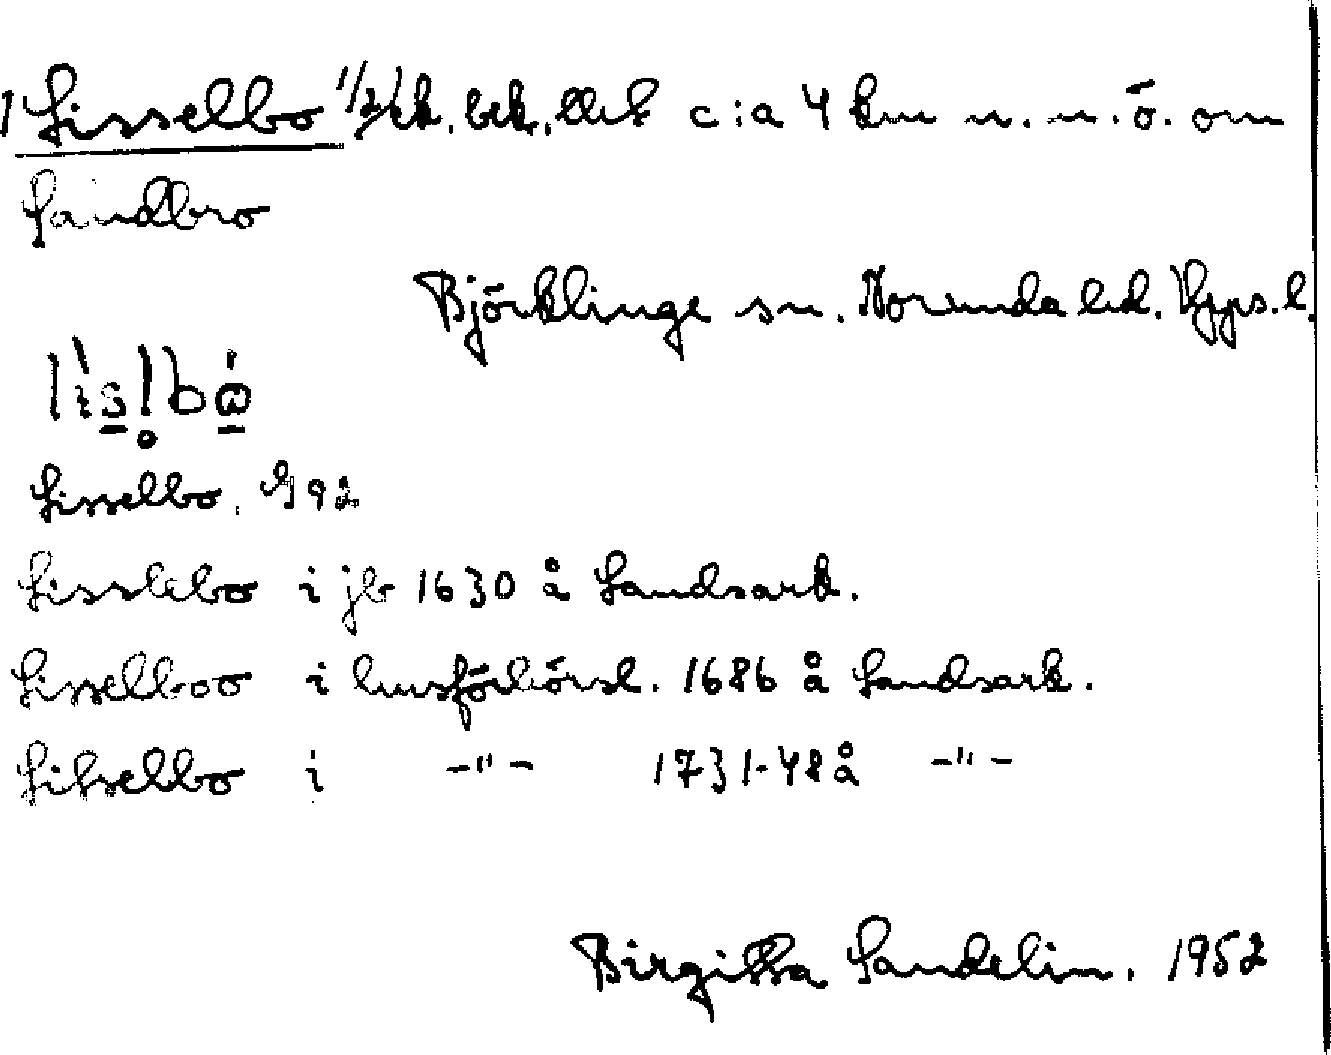 1 Lisselbo 1/2 sk. bek. obet c:a 4 km n. n. ö. om
Sandbro
Björklinge sn. Norunda hd. Upps. l.
Lisselbo. G 92
Lisslebo i jb 1630 å Landsark.
Lisselboo i husförhörsl. 1686 å Landsark.
Litselbo i -"- 1731-48 å -"-
Birgitta Sandelin. 1952